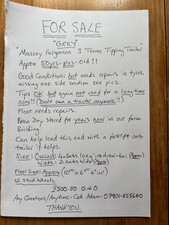 FOR SALE
"GREY"
Massey Ferguson 3 Tonne Tipping Trailer
Approx 50yrs - plus - old!!
Good Condition: but needs repairs ie tyres,
missing one side section see pics.
Tips OK but again not used for a long time
now!! (Don't own a tractor anymore!!)
Floor needs repairs.
Been Dry stored for years now in our Farm
Building
Can help load this end with a forklift onto
trailer if helps.
Size: Overall:
Floor Size: Approx
12 stud wheels
£500.00 O.N.O
Any Questions/Anytime - Call Adam:
THANKYOU